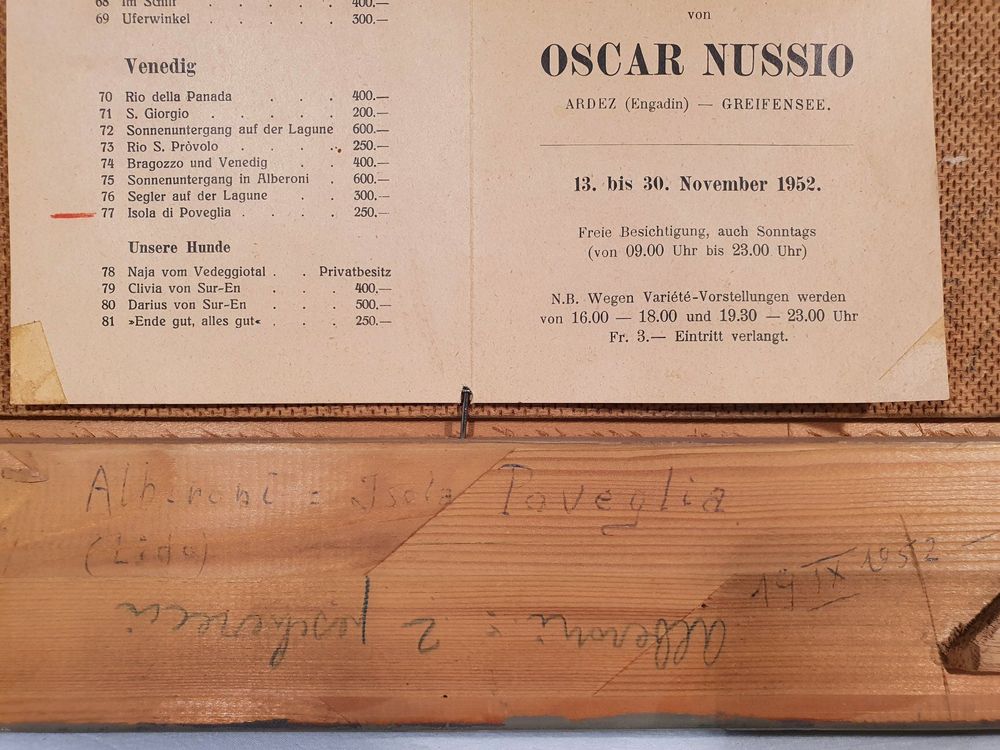 68 Im Schilf . . . . 400.—
69 Uferwinkel . . . . 300.—
Venedig
70 Rio della Panada . . . 400.—
71 S. Giorgio . . . . . 200.—
72 Sonnenuntergang auf der Lagune 600.—
73 Rio S. Pròvolo . . . . 250.—
74 Bragozzo und Venedig . . 400.—
75 Sonnenuntergang in Alberoni . 600.—
76 Segler auf der Lagune . . 300.—
77 Isola di Poveglia . . . . 250.—
Unsere Hunde
78 Naja vom Vedeggiotal . . Privatbesitz
79 Clivia von Sur-En . . . 400.—
80 Darius von Sur-En . . . 500.—
81 »Ende gut, alles gut« . . . 250.—
von
OSCAR NUSSIO
ARDEZ (Engadin) — GREIFENSEE.
13. bis 30. November 1952.
Freie Besichtigung, auch Sonntags
(von 09.00 Uhr bis 23.00 Uhr)
N.B. Wegen Variété-Vorstellungen werden
von 16.00 — 18.00 und 19.30 — 23.00 Uhr
Fr. 3.— Eintritt verlangt.
Alberoni = Isola Poveglia
(Lido)
19 IX 1952
Alberoni = 2 pescherecci